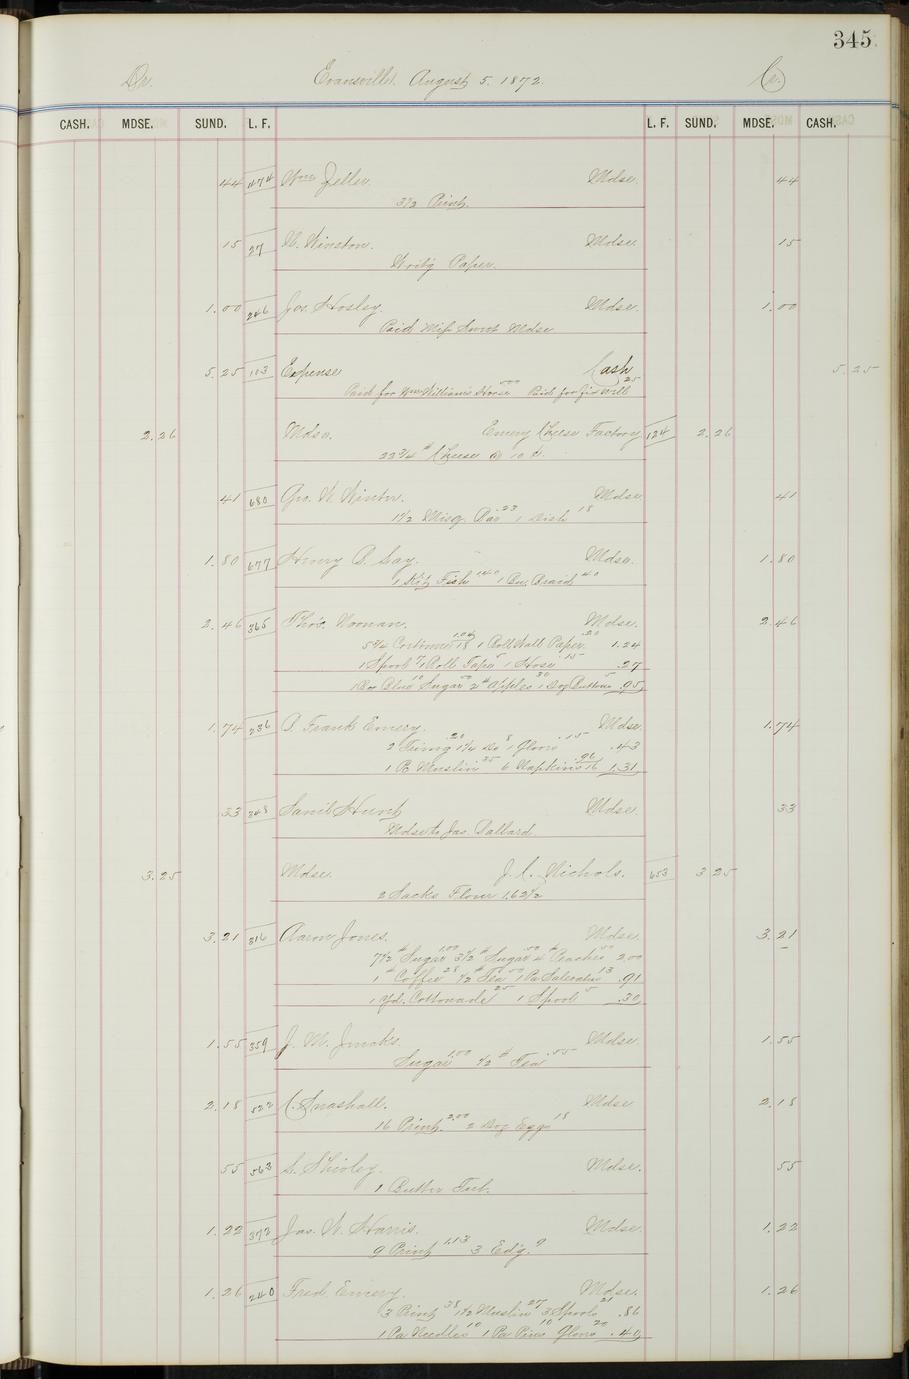 345
Dr. Evansville. August 5. 1872. Cr.
CASH. MDSE. SUND. L. F. L. F. SUND. MDSE. CASH.
44 474 Wm Zeller. Mdse. 44
3 1/2 Print.
15 27 W. Winston. Mdse. 15
Writg Paper.
1.00 246 Jos. Hosley. Mdse. 1.00
Paid Miss Mdse
5.25 103 Expense Cash 5.25
Paid for Wm Williams Horse 500 Paid for 25
2.26 Mdse. Emery Cheese Factory 124 2.26
22 3/4 # Cheese @ 10 c.
41 680 Geo. W. Winter. Mdse 41
1 1/2 .23 1 Dish 18
1.80 677 Henry B. Gay. Mdse. 1.80
1 Kit Fish 1.40 1 Braid 40
2.46 365 Thos. Noonan. Mdse. 2.46
5 3/4 Cottonade 18 1.04 1 Roll Wall Paper .20 1.24
1 Spool 7 1 Roll Tape 5 1 Hose .15 .27
1 Box Blue 10 Sugar 50 2 # Apples 30 1 Doz Buttons 5 .95
1.74 236 B. Frank Emery. Mdse 1.74
2 Trimg .20 1 1/4 Do 8 1 Gloves .15 .43
1 Pc Muslin 35 6 Napkins 16 .96 1.31
33 348 Saml Hunt Mdse. 33
Mdse to Jas. Ballard
3.25 Mdse. J. C. Nichols. 653 3 25
2 Sacks Flour 1.62 1/2
3.21 316 Aaron Jones. Mdse. 3.21
7 1/2 # Sugar 1.00 3 1/2 # Sugar 50 4 # Peaches 50 2.00
1 # Coffee 28 1/2 # Tea 50 1 Pa Saleratus 13 .91
1 Yd. Cottonade 25 1 Spool 5 .30
1.55 359 J. M. Jinaks. Mdse. 1.55
Sugar 1.00 1/2 # Tea .55
2.18 522 C. Snashall. Mdse 2.18
16 Print 2.00 2 Doz Eggs 18
55 563 S. Shirley. Mdse. 55
1 Butter Tub.
1.22 372 Jas. W. Harris. Mdse 1.22
9 Print 1.13 3 Edg. 9
1.26 240 Fred Emery. Mdse. 1.26
3 Print 38 1 1/2 Muslin 27 3 Spools 21 .86
1 Pa Needles 10 1 Pa Pins 10 Gloves 20 .40